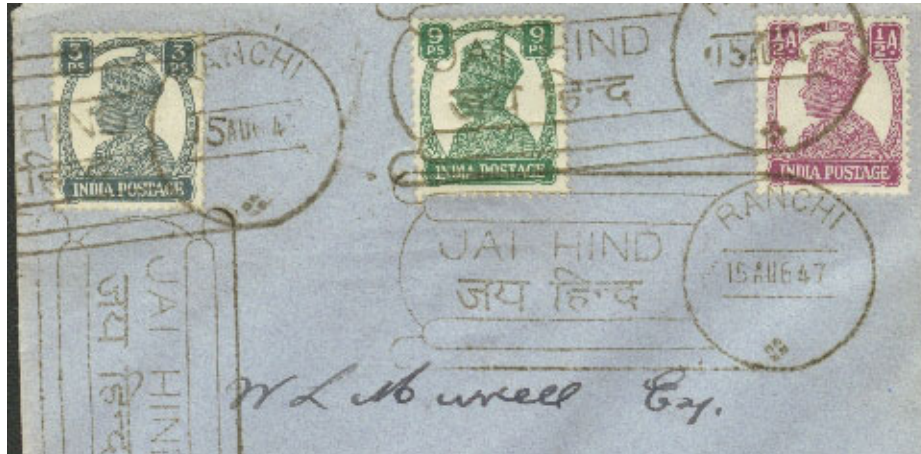 3 PS 3 PS
INDIA POSTAGE
RANCHI
15 AUG 47
9 PS 9 PS
INDIA POSTAGE
JAI HIND
जय हिन्द
15 AUG
½A ½A
INDIA POSTAGE
JAI HIND
जय हिन्द
RANCHI
15 AUG 47
JAI HIND
जय हिन्द
W L